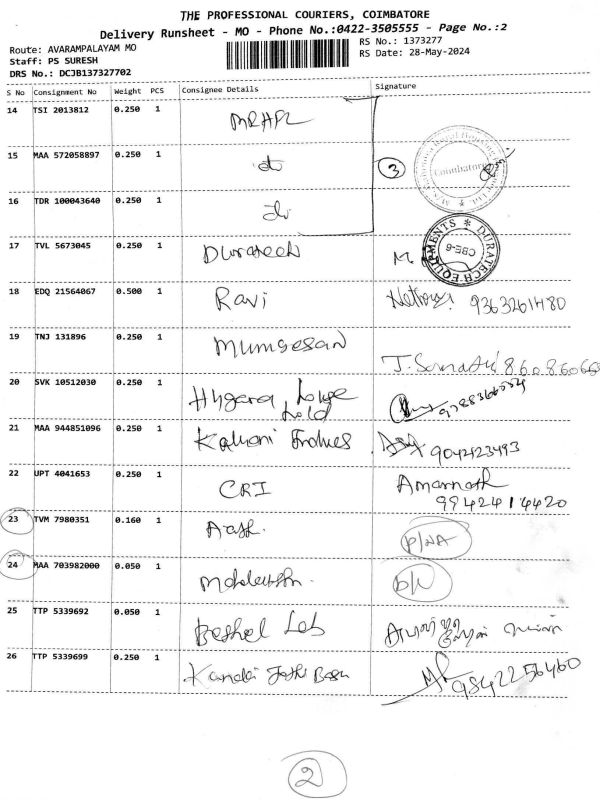 THE PROFESSIONAL COURIERS, COIMBATORE
Delivery Runsheet - MO - Phone No.:0422-3505555 - Page No.:2
Route: AVARAMPALAYAM MO
RS No.: 1373277
Staff: PS SURESH
RS Date: 28-May-2024
DRS No.: DCJB137327702
S No Consignment No Weight PCS Consignee Details Signature
14 TSI 2013812 0.250 1 MRHPL
15 MAA 572058897 0.250 1 do 3 Coimbatore
16 TDR 100043640 0.250 1 do
17 TVL 5673045 0.250 1 Duratech
DURATECH EQUIPMENTS CBE-6
18 EDQ 21564067 0.500 1 Ravi 9363261480
19 TNJ 131896 0.250 1 Mumgesan
20 SVK 10512030 0.250 1
21 MAA 944851096 0.250 1 Kalyani 9042123493
22 UPT 4041653 0.250 1 CRI Amarnath
9942414420
23 TVM 7980351 0.160 1 P/NA
24 MAA 703982000 0.050 1
25 TTP 5339692 0.050 1 Bethel Leb
26 TTP 5339699 0.250 1 9842256460
2